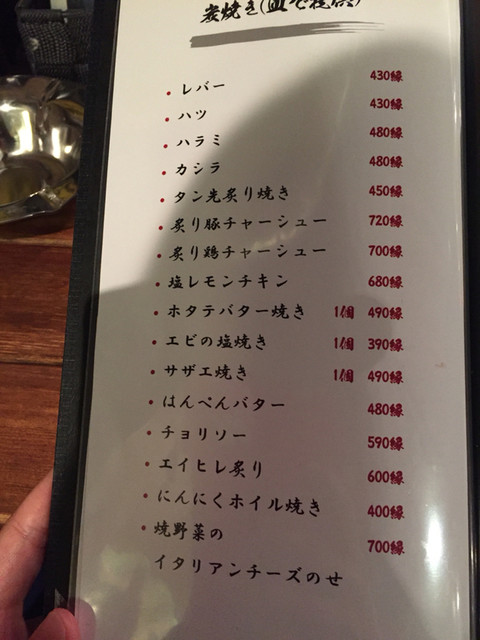 炭焼き(皿で提供)
・レバー 430縁
・ハツ 430縁
・ハラミ 480縁
・カシラ 480縁
・タン先炙り焼き 450縁
・炙り豚チャーシュー 720縁
・炙り鶏チャーシュー 700縁
・塩レモンチキン 680縁
・ホタテバター焼き 1個 490縁
・エビの塩焼き 1個 390縁
・サザエ焼き 1個 490縁
・はんぺんバター 480縁
・チョリソー 590縁
・エイヒレ炙り 600縁
・にんにくホイル焼き 400縁
・焼野菜の 700縁
イタリアンチーズのせ